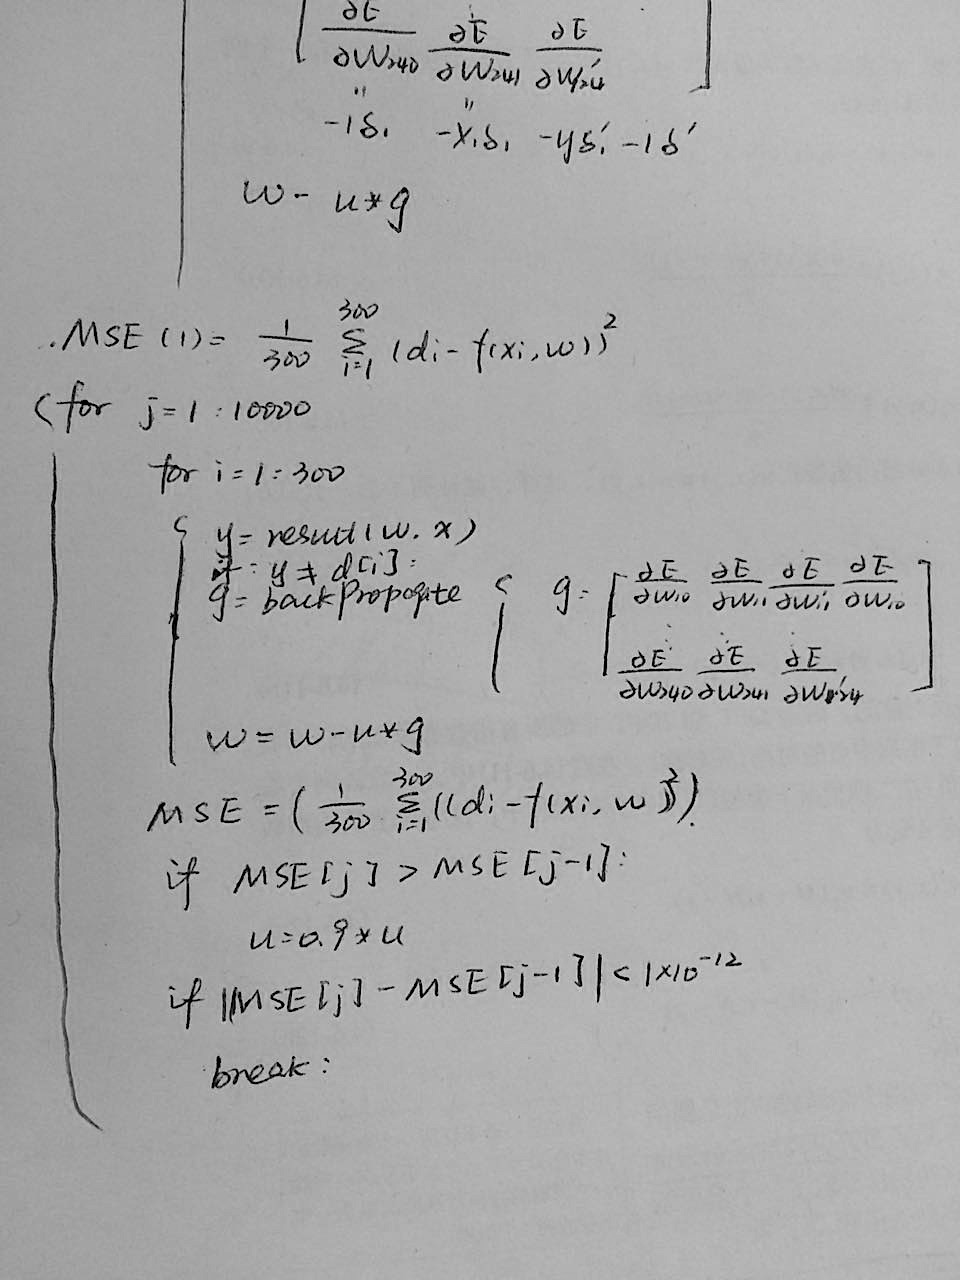 ∂E/∂W₂₄₀ ∂E/∂W₂₄₁ ∂E/∂W'₂₄
" "
-1δ₁ -x₁δ₁ -yδ₁' -1δ'
w - u*g
MSE(1) = 1/300 Σ_{i=1}^{300} (di - f(xi, w))²
for j=1:10000
for i=1:300
y = result(w, x)
if y ≠ d[i]:
g = backpropagate { g = [ ∂E/∂W₁₀ ∂E/∂W₁₁ ∂E/∂W'₁₁ ∂E/∂W₁₀
∂E/∂W₂₄₀ ∂E/∂W₂₄₁ ∂E/∂W'₂₄ ]
w = w - u*g
MSE = ( 1/300 Σ_{i=1}^{300} ((di - f(xi, w)²)
if MSE[j] > MSE[j-1]:
u=0.9*u
if |MSE[j] - MSE[j-1]| < 1×10⁻¹²
break: